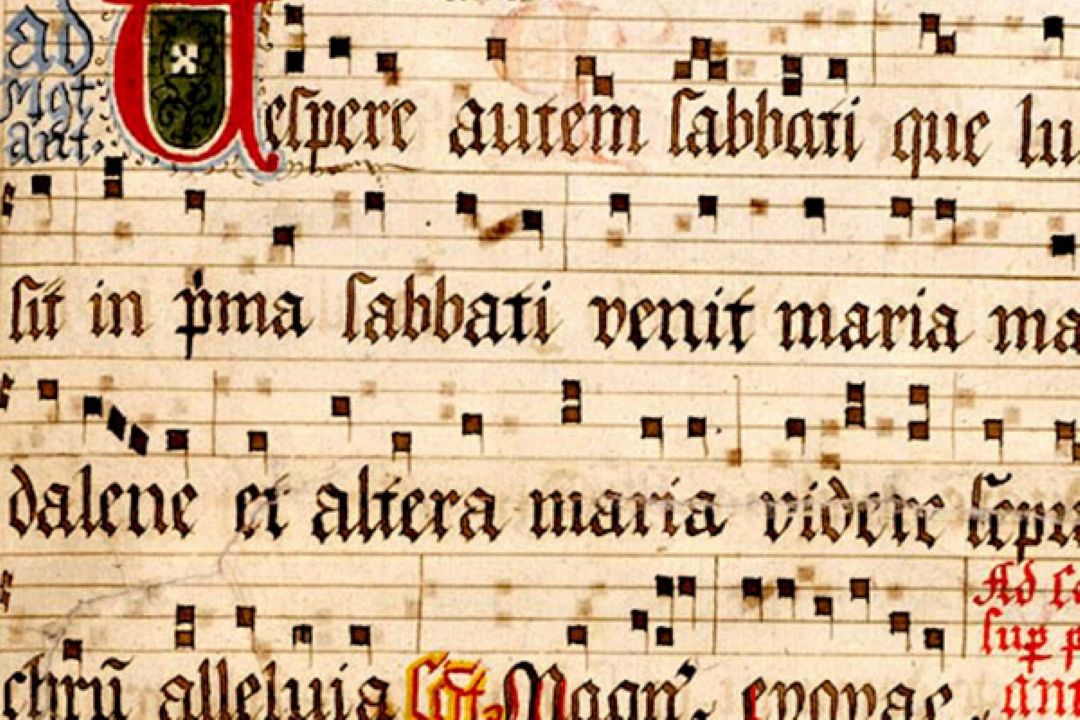 ad
Mgt
ant.
Uespere autem sabbati que lu
sit in pͥma sabbati venit maria ma
dalene et altera maria videre sepu
chrū alleluia Magn̄. evovae.
Ad
sup
ant